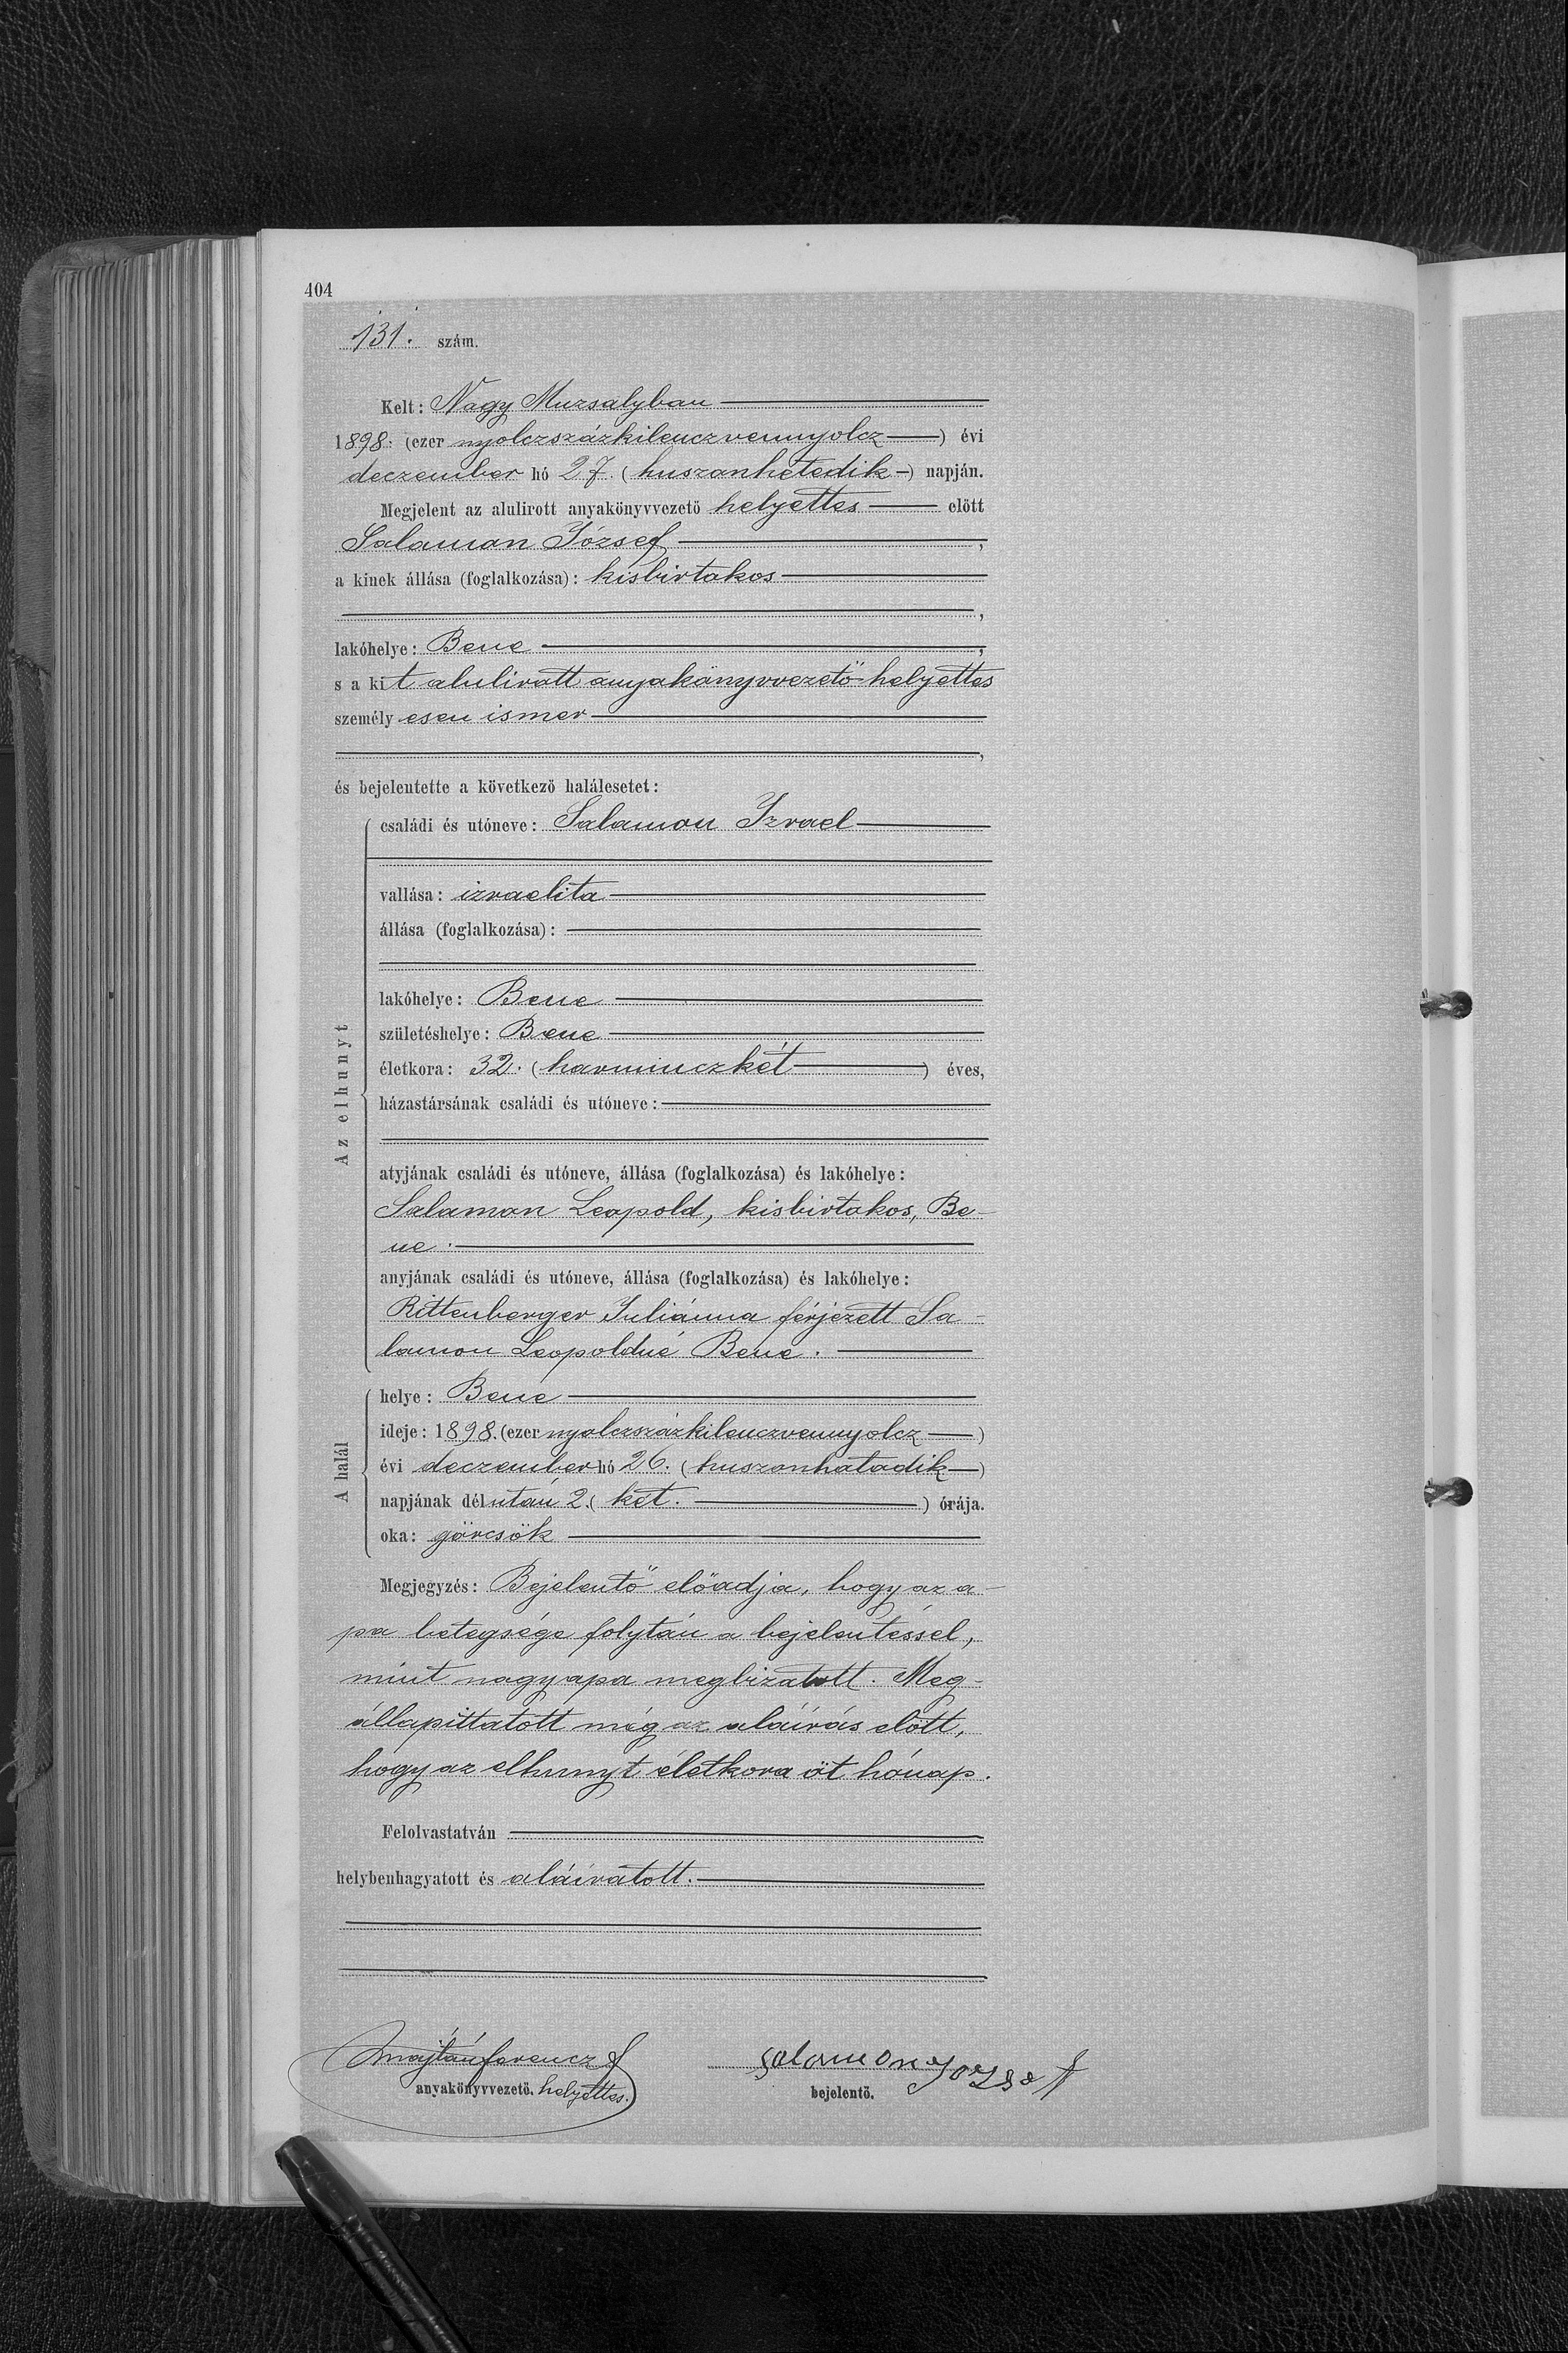 404
131. szám.
Kelt: Nagy Muzsalyban
1898. (ezer nyolczszázkilenczvennyolcz) évi
deczember hó 27. (huszonhetedik) napján.
Megjelent az alulirott anyakönyvvezető helyettes előtt
Salamon József,
a kinek állása (foglalkozása): kisbirtakos
,
lakóhelye: Bene,
s a kit alulirott anyakönyvvezető-helyettes
személyesen ismer
,
és bejelentette a következő halálesetet:
családi és utóneve: Salamon Izrael
vallása: izraelita
állása (foglalkozása):
lakóhelye: Bene
születéshelye: Bene
életkora: 32. (harminczkét) éves,
házastársának családi és utóneve:
Az elhunyt
atyjának családi és utóneve, állása (foglalkozása) és lakóhelye:
Salamon Leopold, kisbirtokos, Be-
ne.
anyjának családi és utóneve, állása (foglalkozása) és lakóhelye:
Rittenberger Juliánna férjezett Sa-
lamon Leopoldné Bene.
helye: Bene
ideje: 1898. (ezer nyolczszázkilenczvennyolcz)
évi deczember hó 26. (huszonhatodik)
A halál
napjának délután 2. (két.) órája.
oka: görcsök
Megjegyzés: Bejelentő előadja, hogy az a-
pa betegsége folytán a bejelentéssel,
mint nagyapa megbizatott. Meg-
állapittatott még az aláírás előtt,
hogy az elhunyt életkora öt hónap.
Felolvastatván
helybenhagyatott és aláíratott.
Majtán Ferencz
anyakönyvvezető. helyettes.
Salamon Jozsef
bejelentő.